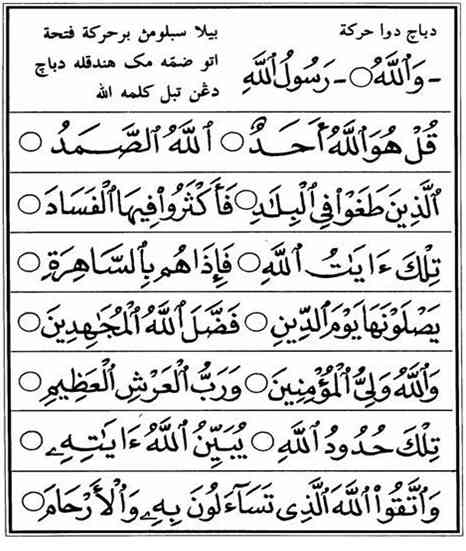 دباچ دوا حركة
بيلا سبلومڽ برحركة فتحة
اتو ضمّه مک هندقله دباچ
دڠن تبل كلمه الله
-وَٱللَّهُ ○-رَسُولُ ٱللَّهِ
قُلْ هُوَ ٱللَّهُ أَحَدٌ ○ ٱللَّهُ ٱلصَّمَدُ ○
ٱلَّذِينَ طَغَوْا۟ فِى ٱلْبِلَٰدِ ○ فَأَكْثَرُوا۟ فِيهَا ٱلْفَسَادَ ○
تِلْكَ ءَايَٰتُ ٱللَّهِ ○ فَإِذَا هُم بِٱلسَّاهِرَةِ ○
يَصْلَوْنَهَا يَوْمَ ٱلدِّينِ ○ فَضَّلَ ٱللَّهُ ٱلْمُجَٰهِدِينَ ○
وَٱللَّهُ وَلِىُّ ٱلْمُؤْمِنِينَ ○ وَرَبُّ ٱلْعَرْشِ ٱلْعَظِيمِ ○
تِلْكَ حُدُودُ ٱللَّهِ ○ يُبَيِّنُ ٱللَّهُ ءَايَٰتِهِۦ ○
وَٱتَّقُوا۟ ٱللَّهَ ٱلَّذِى تَسَآءَلُونَ بِهِۦ وَٱلْأَرْحَامَ ○